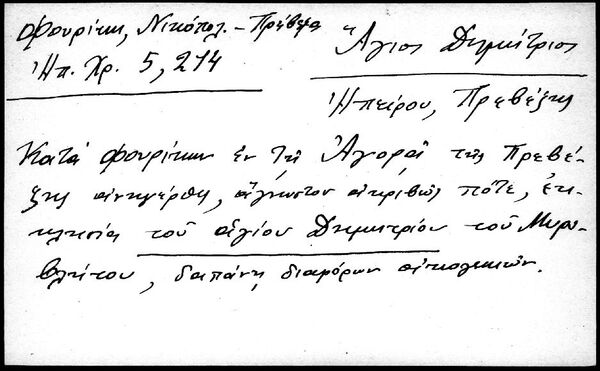 Φουρίκη, Νικόπολ. – Πρέβεζα
Ἠπ. Χρ. 5, 274
Ἅγιος Δημήτριος
Ἠπείρου, Πρεβέζης
Κατὰ Φουρίκην ἐν τῇ Ἀγορᾷ τῆς Πρεβέ-
ζης ἀνηγέρθη, ἄγνωστον ἀκριβῶς πότε, ἐκ-
κλησία τοῦ ἁγίου Δημητρίου τοῦ Μυρο-
βλήτου, δαπάνῃ διαφόρων οἰκογενειῶν.